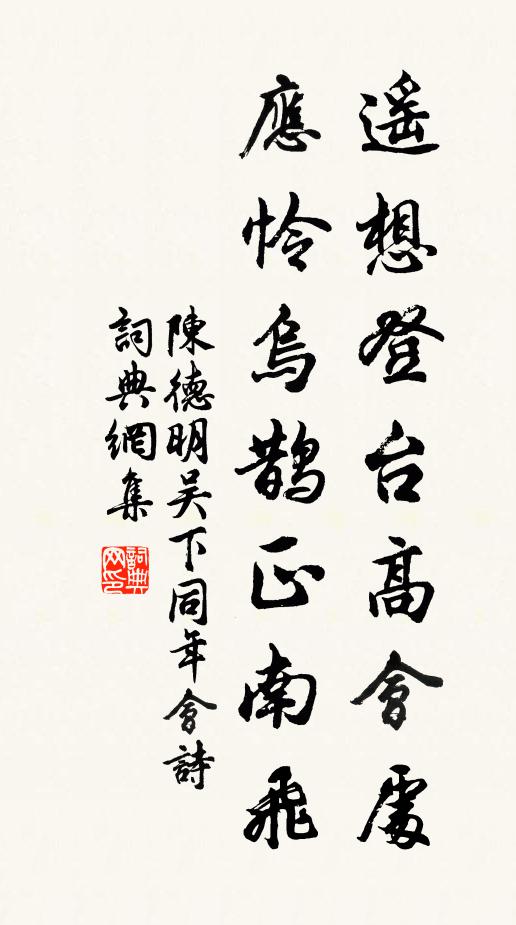 遥想登台高會處
應怜烏鵲正南飛
陳德明吴下同年會詩
詞典網集
詞典網印